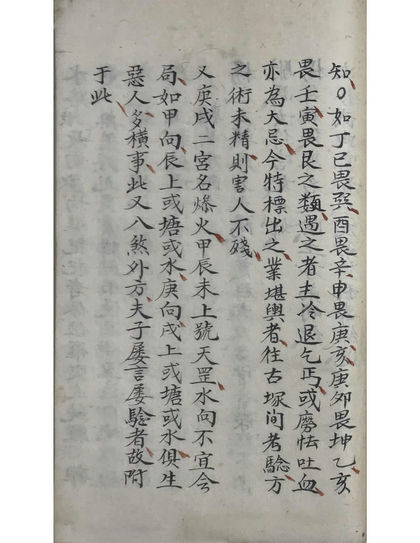 知〇如丁巳畏巽酉畏辛申畏庚亥庚卯畏坤乙亥
畏壬寅畏艮之類遇之者主冷退乞丐或癆怯吐血
亦為大忌今特標出之業堪輿者往古塚間考驗方
之術未精則害人不殘
又庚戌二宮名燥火甲辰未上號天罡水向不宜合
局如甲向辰上或塘或水庚向戌上或塘或水俱生
惡人多橫事此又八煞外方夫子屡言屡驗者故附
于此